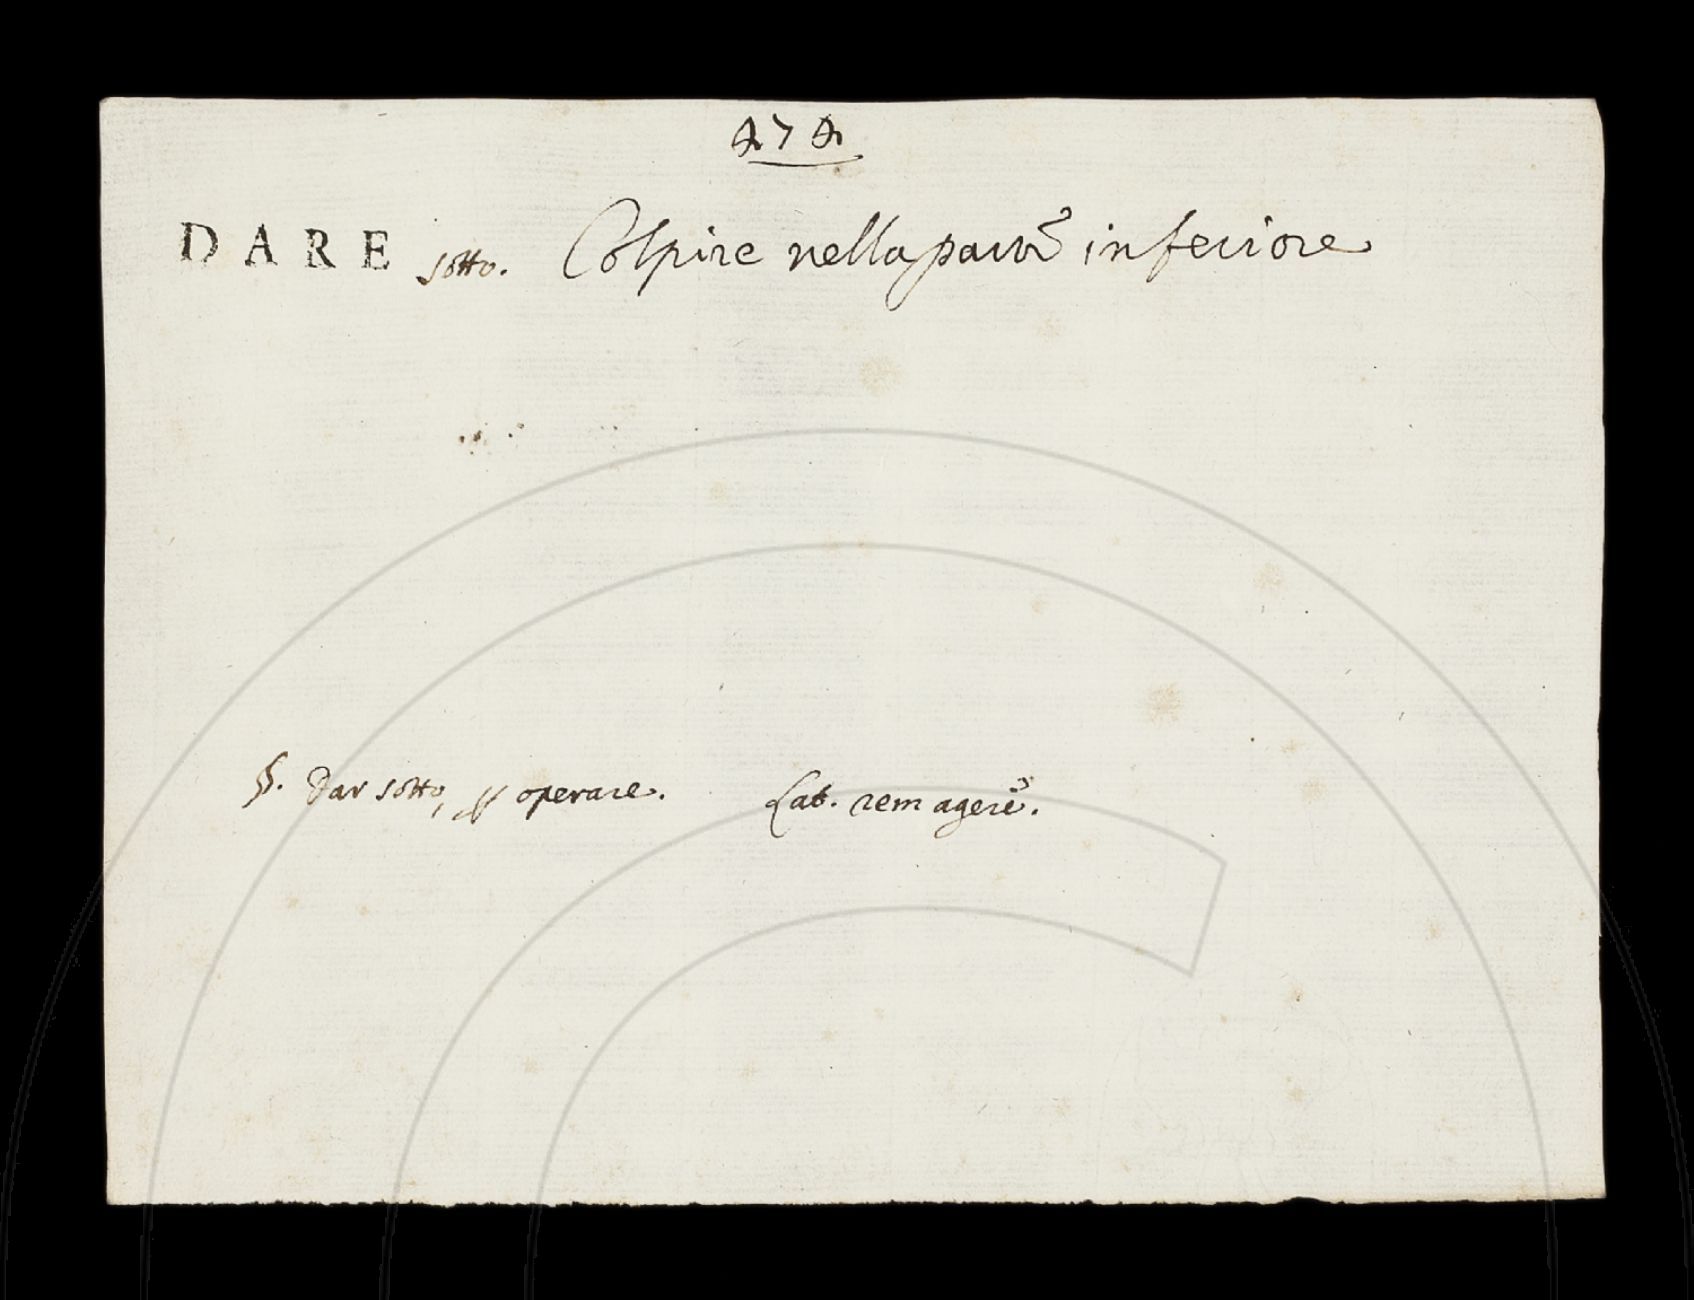 474
DARE sotto. Colpire nella parte inferiore
§. Dar sotto, operare. Lat. rem agere.